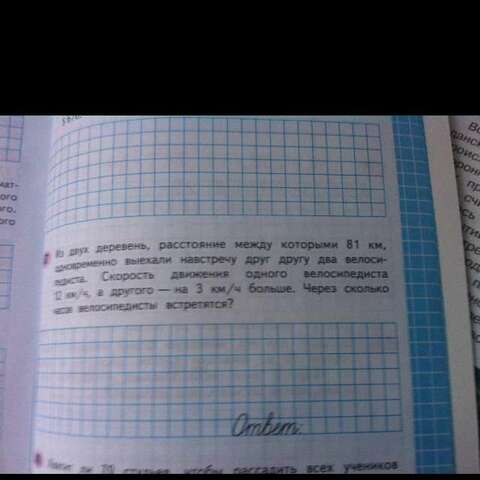 Из двух деревень, расстояние между которыми 81 км,
одновременно выехали навстречу друг другу два велоси-
педиста. Скорость движения одного велосипедиста
12 км/ч, а другого — на 3 км/ч больше. Через сколько
часов велосипедисты встретятся?
Ответ:
ли 70 стульев, чтобы рассадить всех учеников